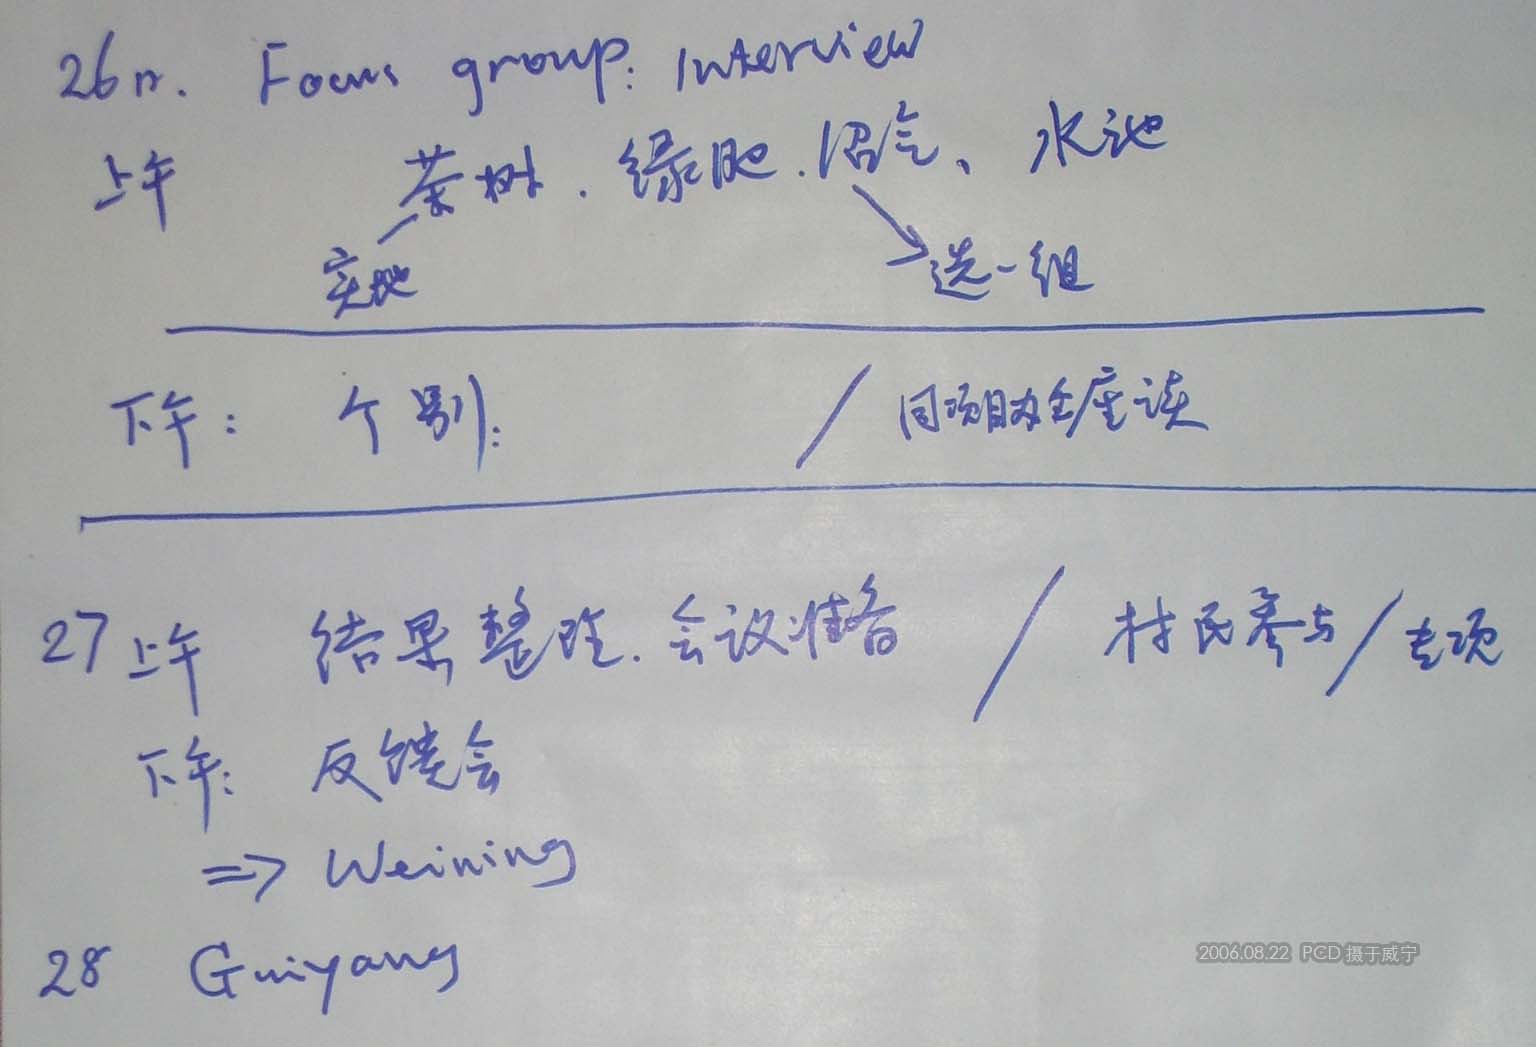 26n. Focus group: Interview
上午 茶树. 绿肥. 沼气、水池
实地 选一组
下午: 个别: / 同项目办座谈
27 上午 结果整理. 会议准备 / 村民参与 / 专项
下午: 反馈会
=> Weining
28 Guiyang
2006.08.22 PCD 摄于威宁